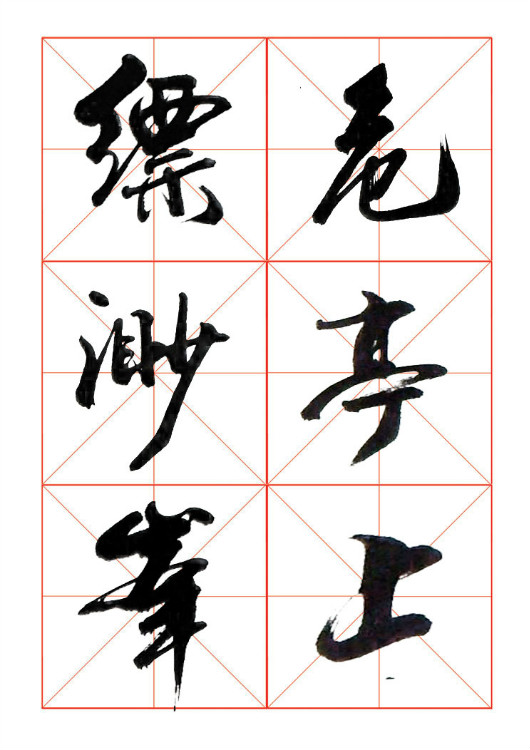 危亭上
缥渺峯